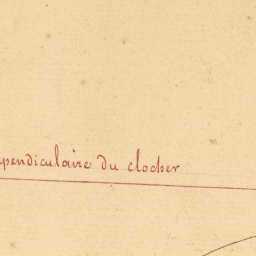 pendiculaire du clocher